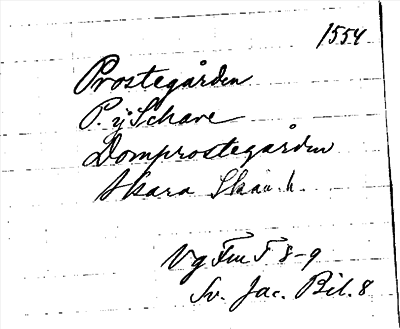 1554
Prostegården
P. ÿ Schare
Domprostegården
Skara Skar. h.
Vg Fm T 8-9
Sv. Jac. Bil. 8